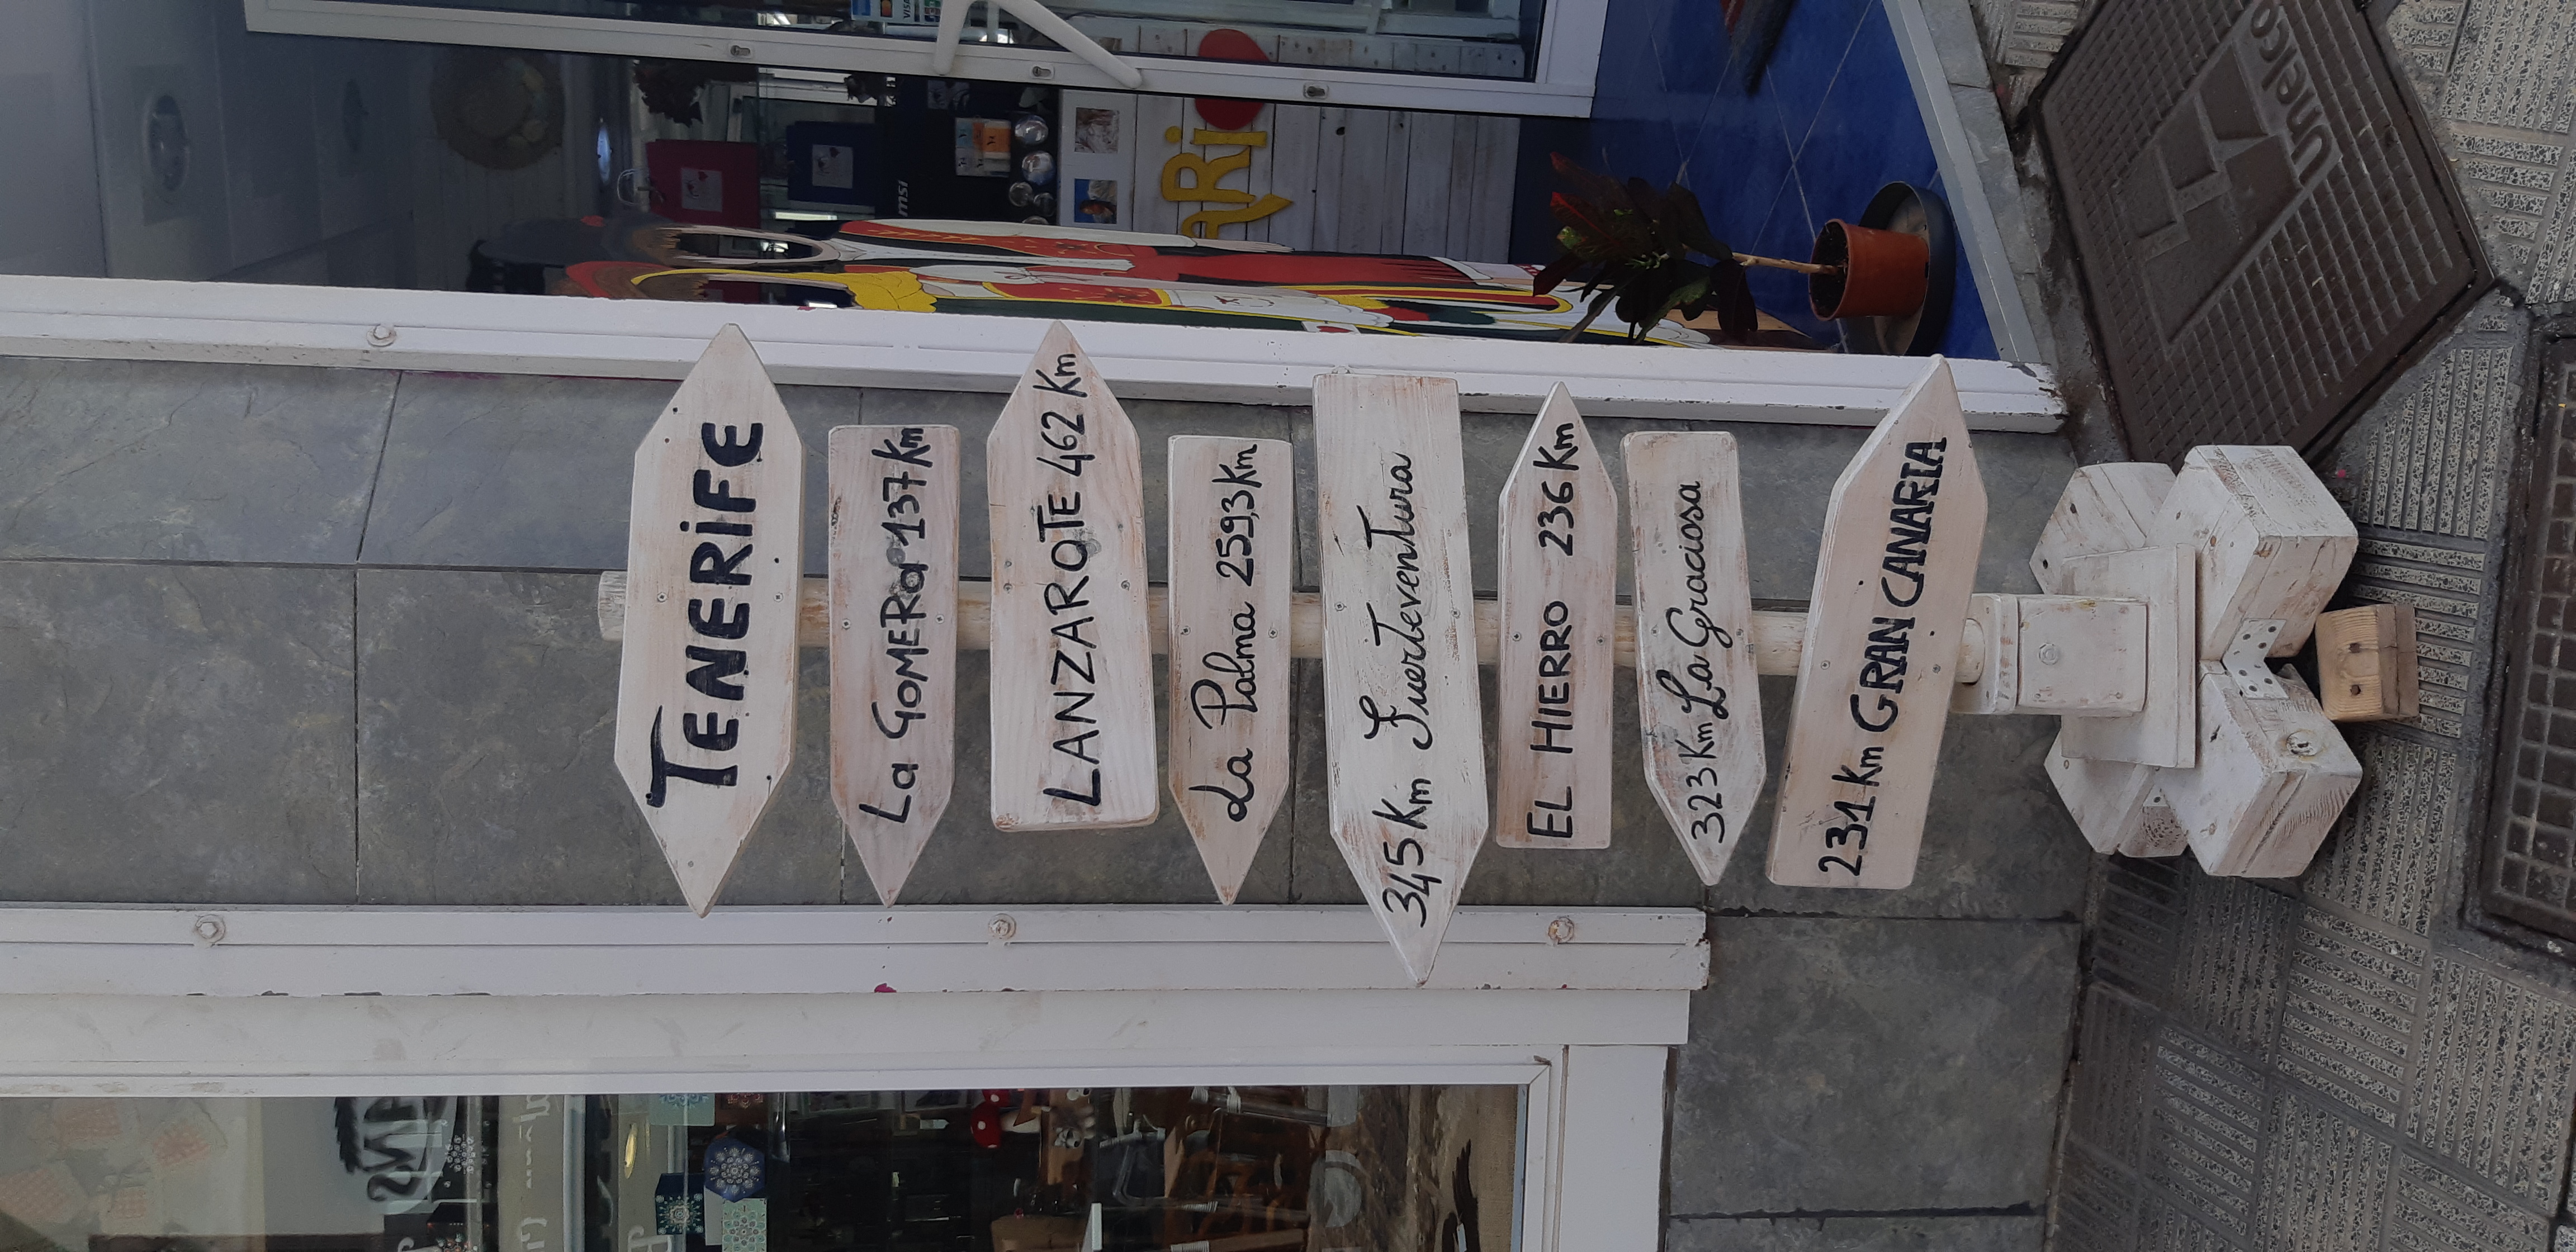 TENERiFE
La GOMERa 137 Km
LANZAROTE 462 Km
La Palma 259,3 Km
345 Km Fuerteventura
EL HIERRO 236 Km
323 Km La Graciosa
231 Km GRAN CANARIA
msi
VISA
ARi
Unelco